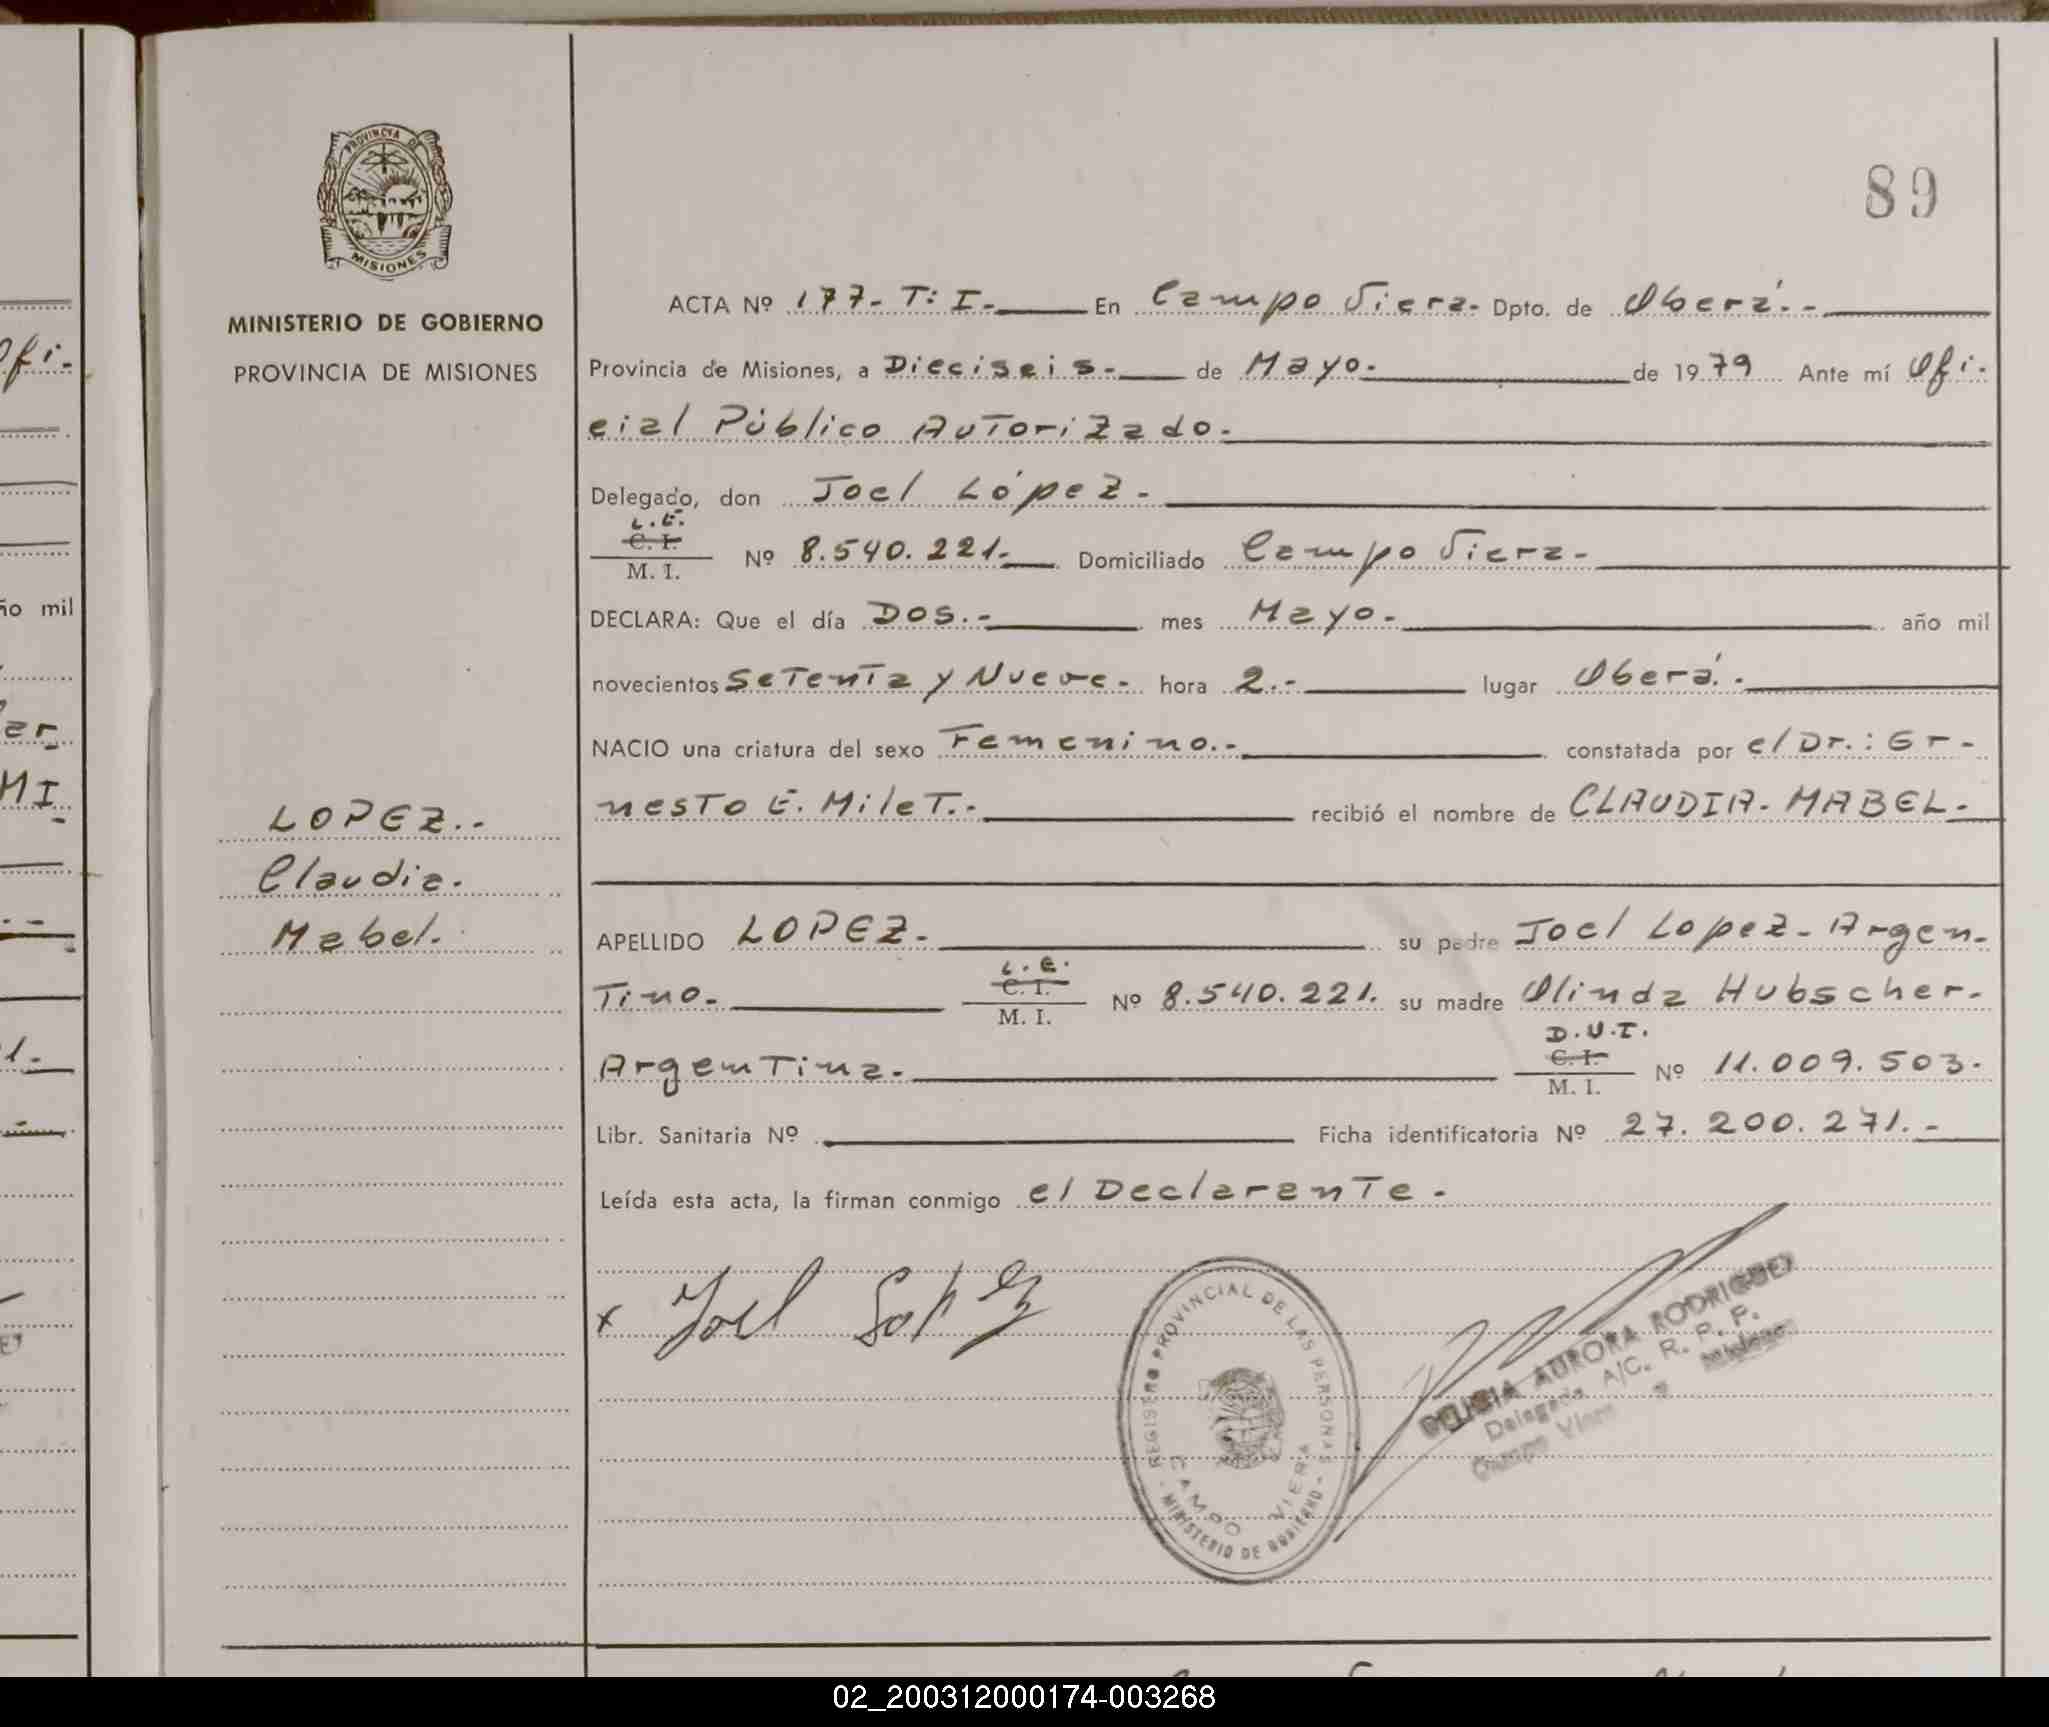 PROVINCIA DE
MISIONES
MINISTERIO DE GOBIERNO
PROVINCIA DE MISIONES
LOPEZ.-
Claudia.
Mabel.
89
ACTA Nº 177- T: I.- En Campo Viera- Dpto. de Oberá.-
Provincia de Misiones, a Dieciseis- de Mayo- de 1979 Ante mí Ofi-
cial Público Autorizado-
Delegado, don Joel López-
L.E.
C. I.
M. I.
Nº 8.540.221- Domiciliado Campo Viera-
DECLARA: Que el día Dos.- mes Mayo- año mil
novecientos Setenta y Nueve- hora 2.- lugar Oberá.-
NACIO una criatura del sexo Femenino.- constatada por el Dr.: Er-
nesto E. Milet.- recibió el nombre de CLAUDIA- MABEL-
APELLIDO LOPEZ- su padre Joel Lopez- Argen-
L.E.
tino- C. I. Nº 8.540.221. su madre Olinda Hubscher-
M. I.
D.U.I.
Argentina- C. I. Nº 11.009.503-
M. I.
Libr. Sanitaria Nº Ficha identificatoria Nº 27.200.271.-
Leída esta acta, la firman conmigo el Declarante-
x Joel Lopez
REGISTRO PROVINCIAL DE LAS PERSONAS
CAMPO VIERA
- MINISTERIO DE GOBIERNO -
AURORA RODRIGUEZ
Delegada A/C. R. P. P.
Campo Viera Misiones
ño mil
Ofi-
er
MI
1.-
02_200312000174-003268